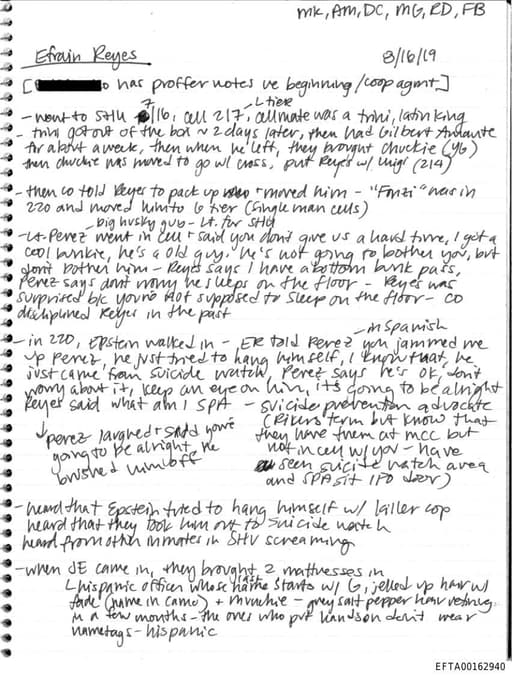 MK, AM, DC, MG, RD, FB
Efrain Reyes 8/16/19
[ has proffer notes re beginning/coop agmt.]
L tier
- went to SHU 7/16, cell 217, cellmate was a trini, latin king
- trini got out of the box ~ 2 days later, then had Gilbert
for about a week, then when he left, they brought chuckie (46)
then chuckie was moved to go w/ cross, put Reyes w/ Luigi (214)
- then co told Reyes to pack up + moved him - "Fonzi" was in
220 and moved him to G tier (single man cells)
big husky guy - Lt. for SHU
- Lt. Perez went in cell + said you don't give us a hard time, I got a
cool bunkie, he's a old guy. he's not going to bother you, but
don't bother him - Reyes says I have a bottom bunk pass,
Perez says don't worry he sleeps on the floor - Reyes was
surprised b/c you're not supposed to sleep on the floor - CO
disciplined Reyes in the past
in Spanish
- in 220, Epstein walked in - ER told Perez you jammed me
up Perez, he just tried to hang himself, I know that, he
just came from suicide watch, Perez says he's ok, don't
worry about it, keep an eye on him, it's going to be alright
Reyes said what am I SPA - suicide prevention advocate
(Rikers term but know that
they have them at MCC but
not in cell w/ you - have
seen suicide watch area
and SPA sit IFO door)
Perez laughed + said you're
going to be alright, he
brushed him off
- heard that Epstein tried to hang himself w/ killer cop
heard that they took him out to suicide watch
heard from other inmates in SHU screaming
- when JE came in, they brought 2 mattresses in
L hispanic officer whose last name starts w/ G, jelled up hair w/
fade (name in camo) + - grey salt pepper hair retiring
in a few months - the ones who put hands on don't wear
nametags - hispanic
EFTA00162940